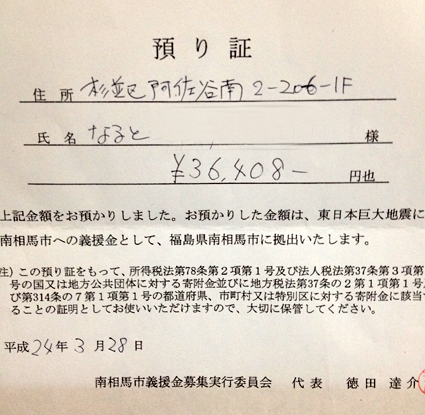 預り証
住所 杉並区阿佐谷南2-206-1F
氏名 なると 様
¥36,408- 円也
上記金額をお預かりしました。お預かりした金額は、東日本巨大地震に
南相馬市への義援金として、福島県南相馬市に拠出いたします。
注）この預り証をもって、所得税法第78条第2項第1号及び法人税法第37条第3項第
号の国又は地方公共団体に対する寄附金並びに地方税法第37条の2第1項第1号及
び第314条の7第1項第1号の都道府県、市町村又は特別区に対する寄附金に該当
ることの証明としてお使いいただけますので、大切に保管してください。
平成24年3月28日
南相馬市義援金募集実行委員会 代表 徳田達介